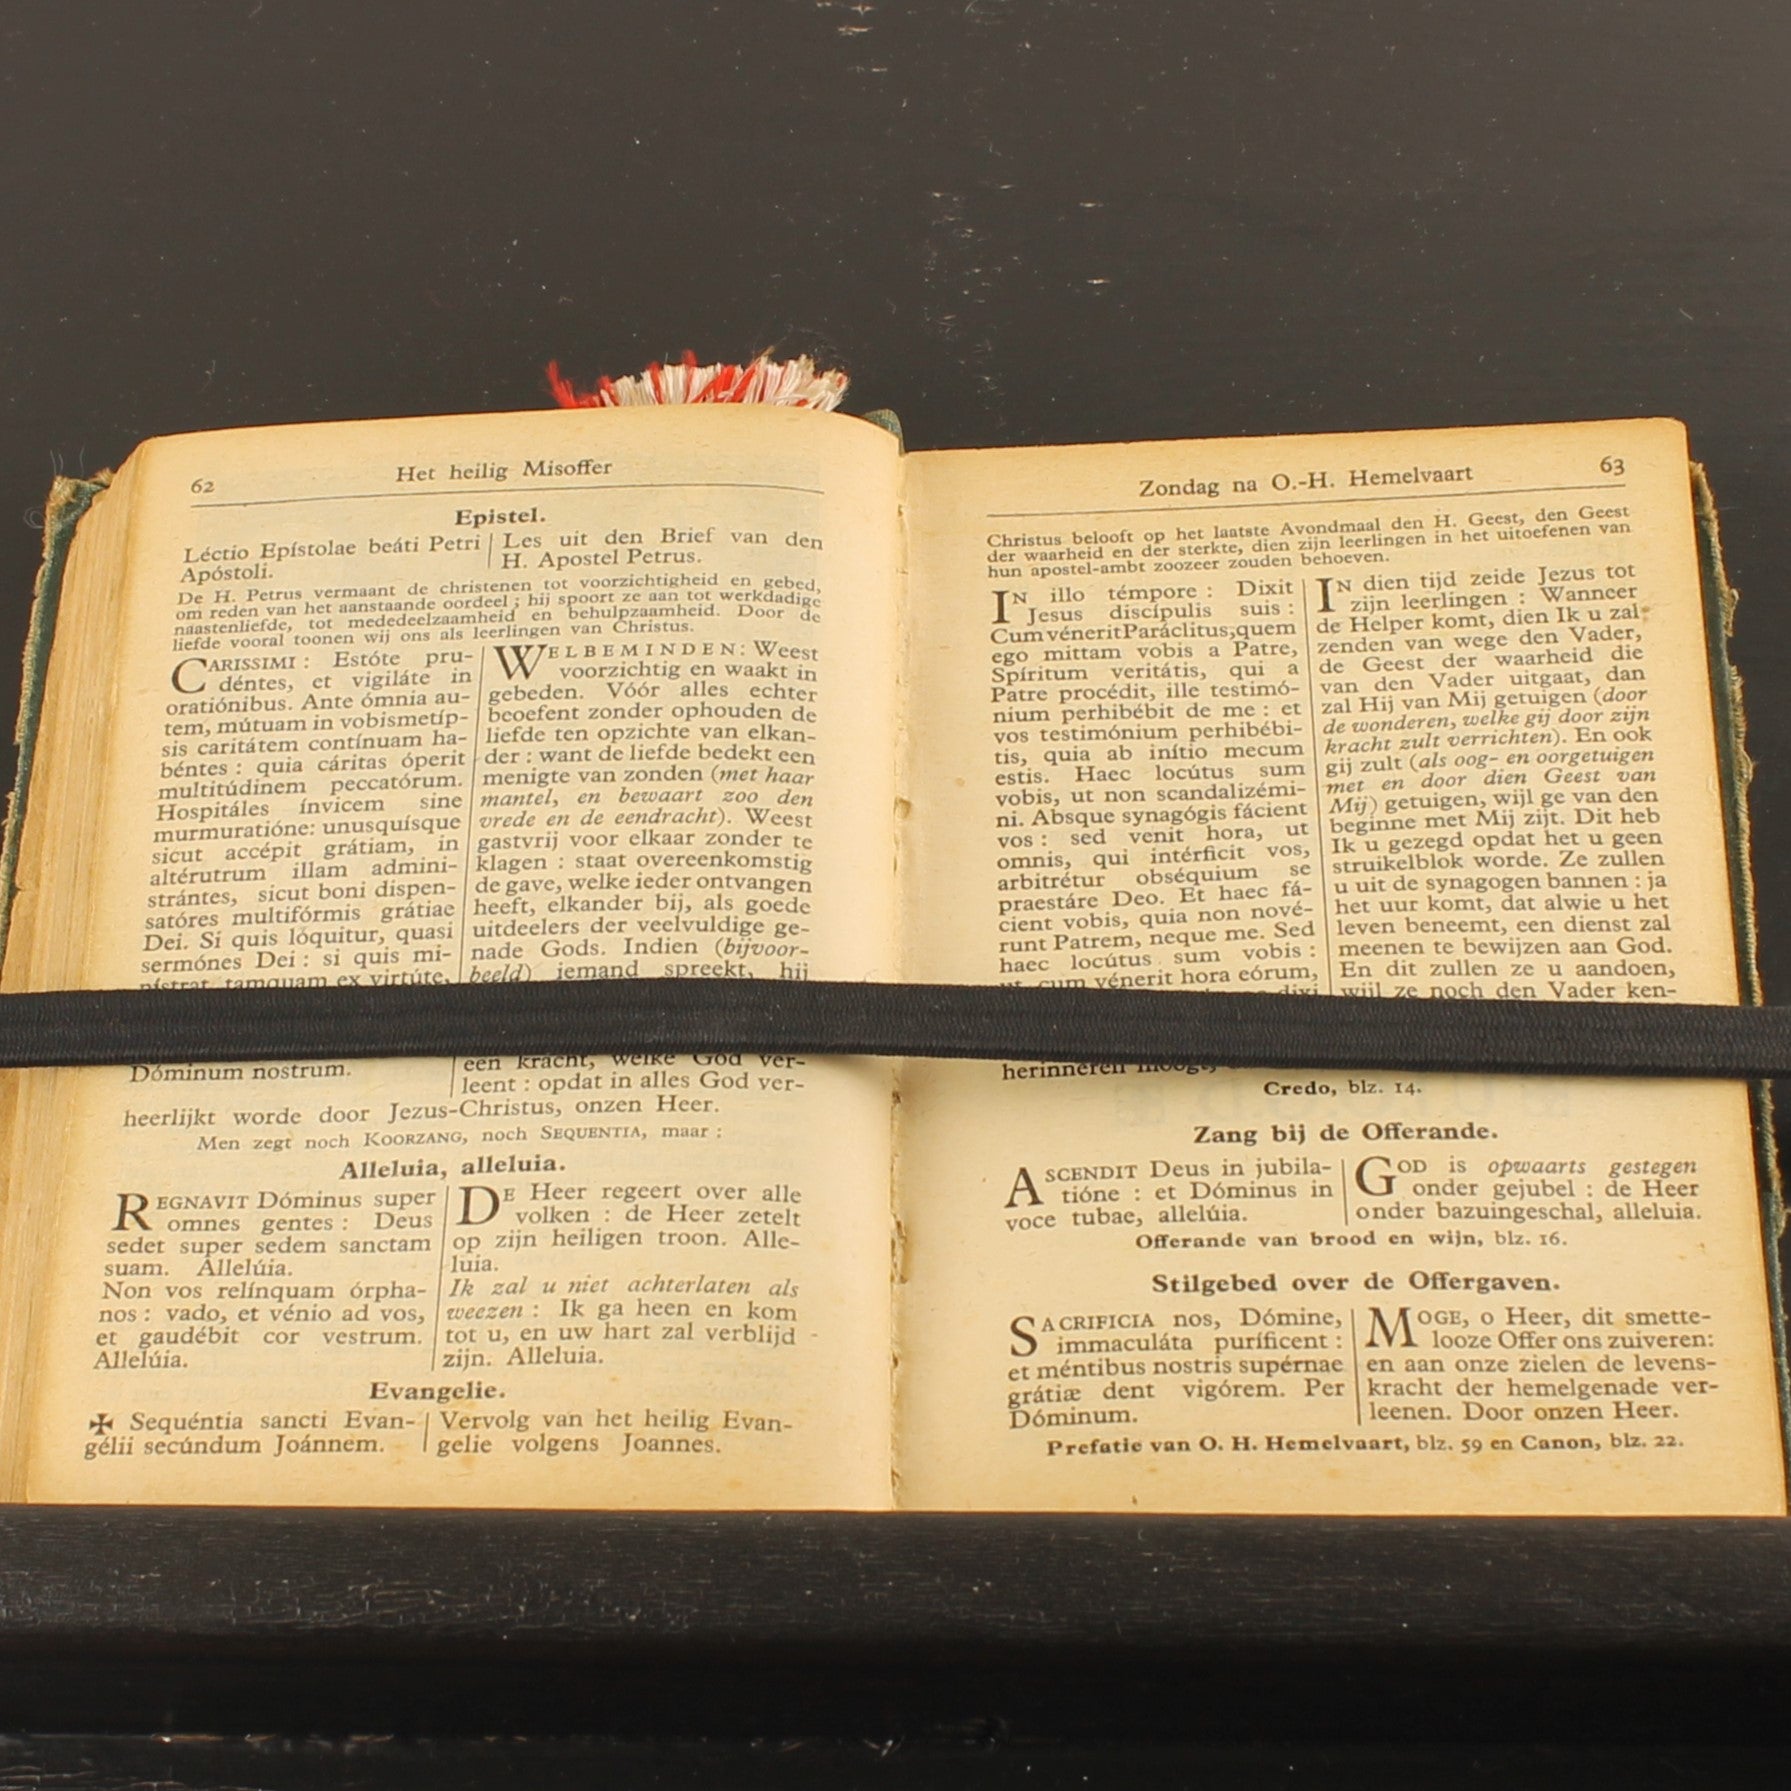 62
Het heilig Misoffer
Epistel.
Léctio Epístolae beáti Petri
Apóstoli.
Les uit den Brief van den
H. Apostel Petrus.
De H. Petrus vermaant de christenen tot voorzichtigheid en gebed,
om reden van het aanstaande oordeel ; hij spoort ze aan tot werkdadige
naastenliefde, tot mededeelzaamheid en behulpzaamheid. Door de
liefde vooral toonen wij ons als leerlingen van Christus.
CARISSIMI : Estóte pru-
déntes, et vigiláte in
oratiónibus. Ante ómnia au-
tem, mútuam in vobismetíp-
sis caritátem contínuam ha-
béntes : quia cáritas óperit
multitúdinem peccatórum.
Hospitáles ínvicem sine
murmuratióne: unusquísque
sicut accépit grátiam, in
altérutrum illam admini-
strántes, sicut boni dispen-
satóres multifórmis grátiae
Dei. Si quis lóquitur, quasi
sermónes Dei : si quis mi-
nístrat, tamquam ex virtúte,
Dóminum nostrum.
WELBEMINDEN: Weest
voorzichtig en waakt in
gebeden. Vóór alles echter
beoefent zonder ophouden de
liefde ten opzichte van elkan-
der : want de liefde bedekt een
menigte van zonden (met haar
mantel, en bewaart zoo den
vrede en de eendracht). Weest
gastvrij voor elkaar zonder te
klagen : staat overeenkomstig
de gave, welke ieder ontvangen
heeft, elkander bij, als goede
uitdeelers der veelvuldige ge-
nade Gods. Indien (bijvoor-
beeld) jemand spreekt, hij
een kracht, welke God ver-
leent : opdat in alles God ver-
heerlijkt worde door Jezus-Christus, onzen Heer.
Men zegt noch KOORZANG, noch SEQUENTIA, maar :
Alleluia, alleluia.
REGNAVIT Dóminus super
omnes gentes : Deus
sedet super sedem sanctam
suam. Allelúia.
Non vos relínquam órpha-
nos : vado, et vénio ad vos,
et gaudébit cor vestrum.
Allelúia.
DE Heer regeert over alle
volken : de Heer zetelt
op zijn heiligen troon. Alle-
luia.
Ik zal u niet achterlaten als
weezen : Ik ga heen en kom
tot u, en uw hart zal verblijd
zijn. Alleluia.
Evangelie.
✠ Sequéntia sancti Evan-
gélii secúndum Joánnem.
Vervolg van het heilig Evan-
gelie volgens Joannes.
Zondag na O.-H. Hemelvaart
63
Christus belooft op het laatste Avondmaal den H. Geest, den Geest
der waarheid en der sterkte, dien zijn leerlingen in het uitoefenen van
hun apostel-ambt zoozeer zouden behoeven.
IN illo témpore : Dixit
Jesus discípulis suis :
Cum vénerit Paráclitus, quem
ego mittam vobis a Patre,
Spíritum veritátis, qui a
Patre procédit, ille testimó-
nium perhibébit de me : et
vos testimónium perhibébi-
tis, quia ab inítio mecum
estis. Haec locútus sum
vobis, ut non scandalizémi-
ni. Absque synagógis fácient
vos : sed venit hora, ut
omnis, qui intérficit vos,
arbitrétur obséquium se
praestáre Deo. Et haec fá-
cient vobis, quia non nové-
runt Patrem, neque me. Sed
haec locútus sum vobis :
ut cum vénerit hora eórum,
dixi
IN dien tijd zeide Jezus tot
zijn leerlingen : Wanneer
de Helper komt, dien Ik u zal
zenden van wege den Vader,
de Geest der waarheid die
van den Vader uitgaat, dan
zal Hij van Mij getuigen (door
de wonderen, welke gij door zijn
kracht zult verrichten). En ook
gij zult (als oog- en oorgetuigen
met en door dien Geest van
Mij) getuigen, wijl ge van den
beginne met Mij zijt. Dit heb
Ik u gezegd opdat het u geen
struikelblok worde. Ze zullen
u uit de synagogen bannen : ja
het uur komt, dat alwie u het
leven beneemt, een dienst zal
meenen te bewijzen aan God.
En dit zullen ze u aandoen,
wijl ze noch den Vader ken-
herinneren moogt,
Credo, blz. 14.
Zang bij de Offerande.
ASCENDIT Deus in jubila-
tióne : et Dóminus in
voce tubae, allelúia.
GOD is opwaarts gestegen
onder gejubel : de Heer
onder bazuingeschal, alleluia.
Offerande van brood en wijn, blz. 16.
Stilgebed over de Offergaven.
SACRIFICIA nos, Dómine,
immaculáta puríficent :
et méntibus nostris supérnae
grátiæ dent vigórem. Per
Dóminum.
MOGE, o Heer, dit smette-
looze Offer ons zuiveren:
en aan onze zielen de levens-
kracht der hemelgenade ver-
leenen. Door onzen Heer.
Prefatie van O. H. Hemelvaart, blz. 59 en Canon, blz. 22.